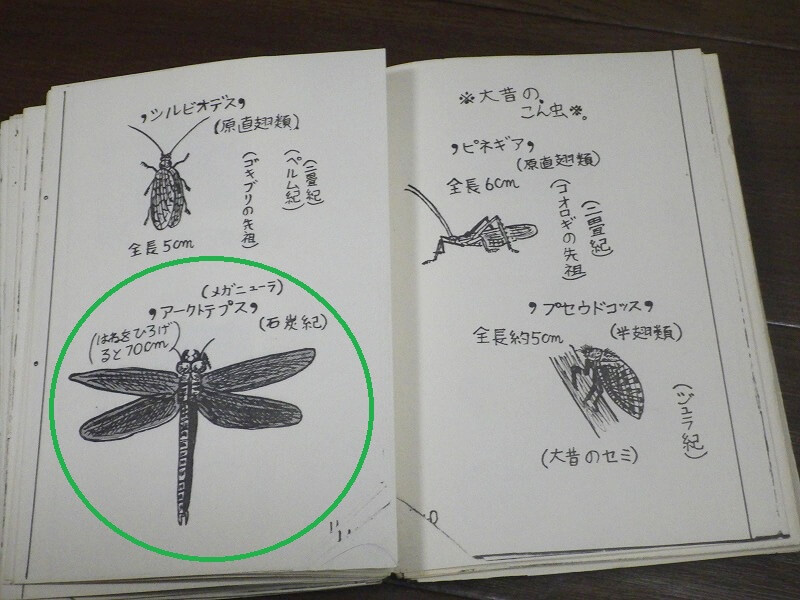 ※大昔の、
こん虫※。
❜ピネギア❜
(原直翅類)
全長6cm
(二畳紀)
(コオロギの先祖)
❜プセウドコッス❜
全長約5cm
(半翅類)
(ジュラ紀)
(大昔のセミ)
❜シルビオデス❜
(原直翅類)
(二畳紀)
(ペルム紀)
(ゴキブリの先祖)
全長5cm
(メガニューラ)
❜アークトテプス❜
(石炭紀)
(はねをひろげ
ると70cm)